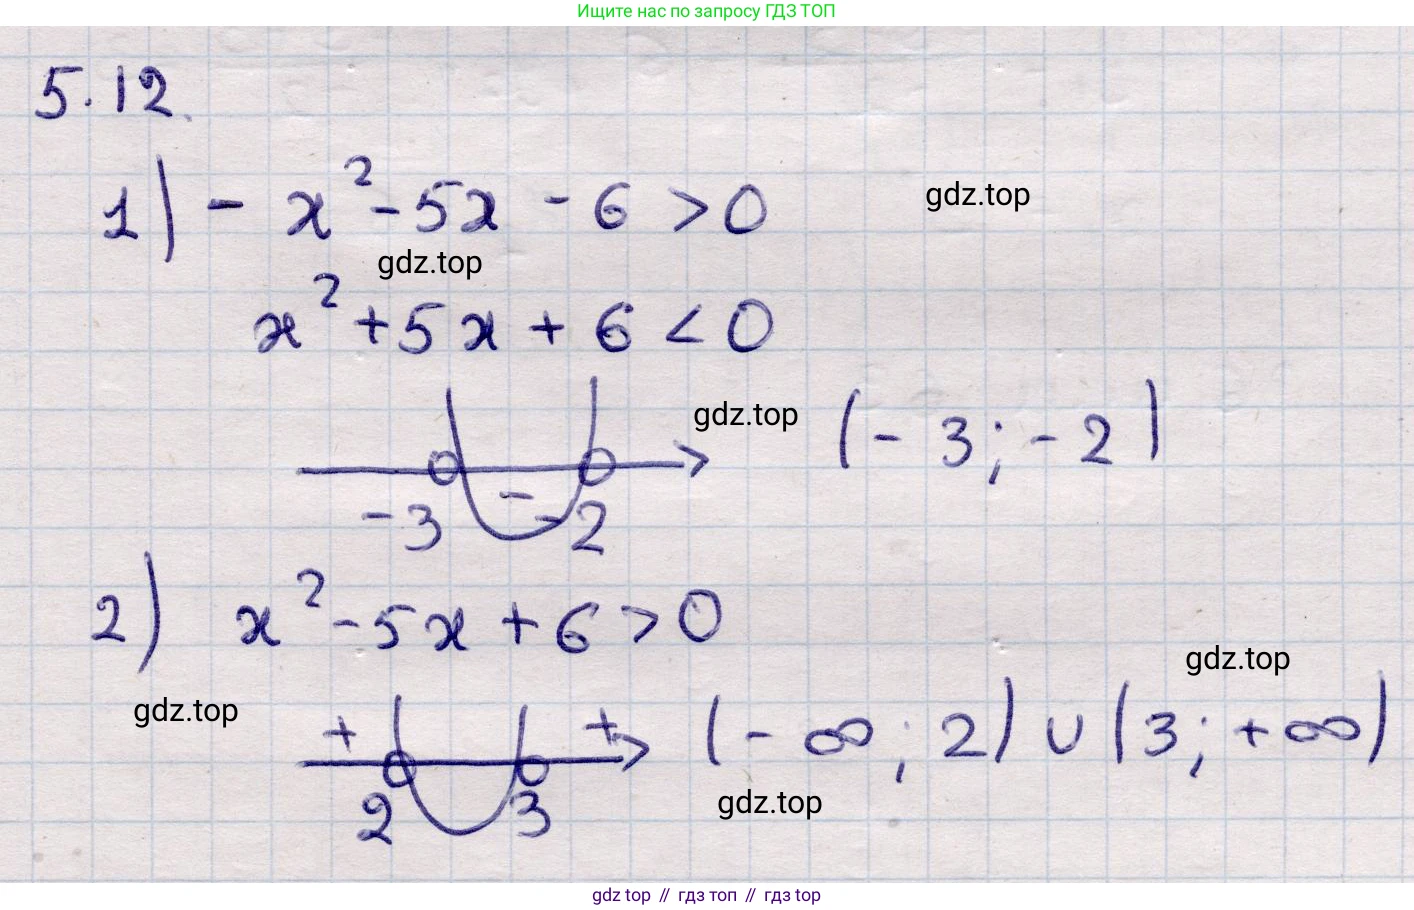 Ищите нас по запросу ГДЗ ТОП
5.12.
1) - x² - 5x - 6 > 0
gdz.top
gdz.top
x² + 5x + 6 < 0
gdz.top
(- 3; - 2)
-
- 3 - 2
2) x² - 5x + 6 > 0
gdz.top
gdz.top
+ + (- ∞; 2) ∪ (3; + ∞)
2 3
gdz.top
gdz top // гдз топ // гдз top